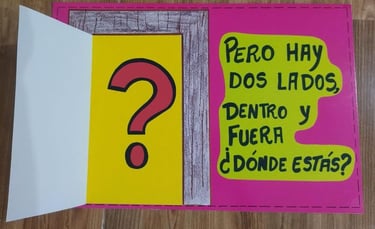 ?
PERO HAY
DOS LADOS,
DENTRO Y
FUERA
¿DÓNDE ESTÁS?